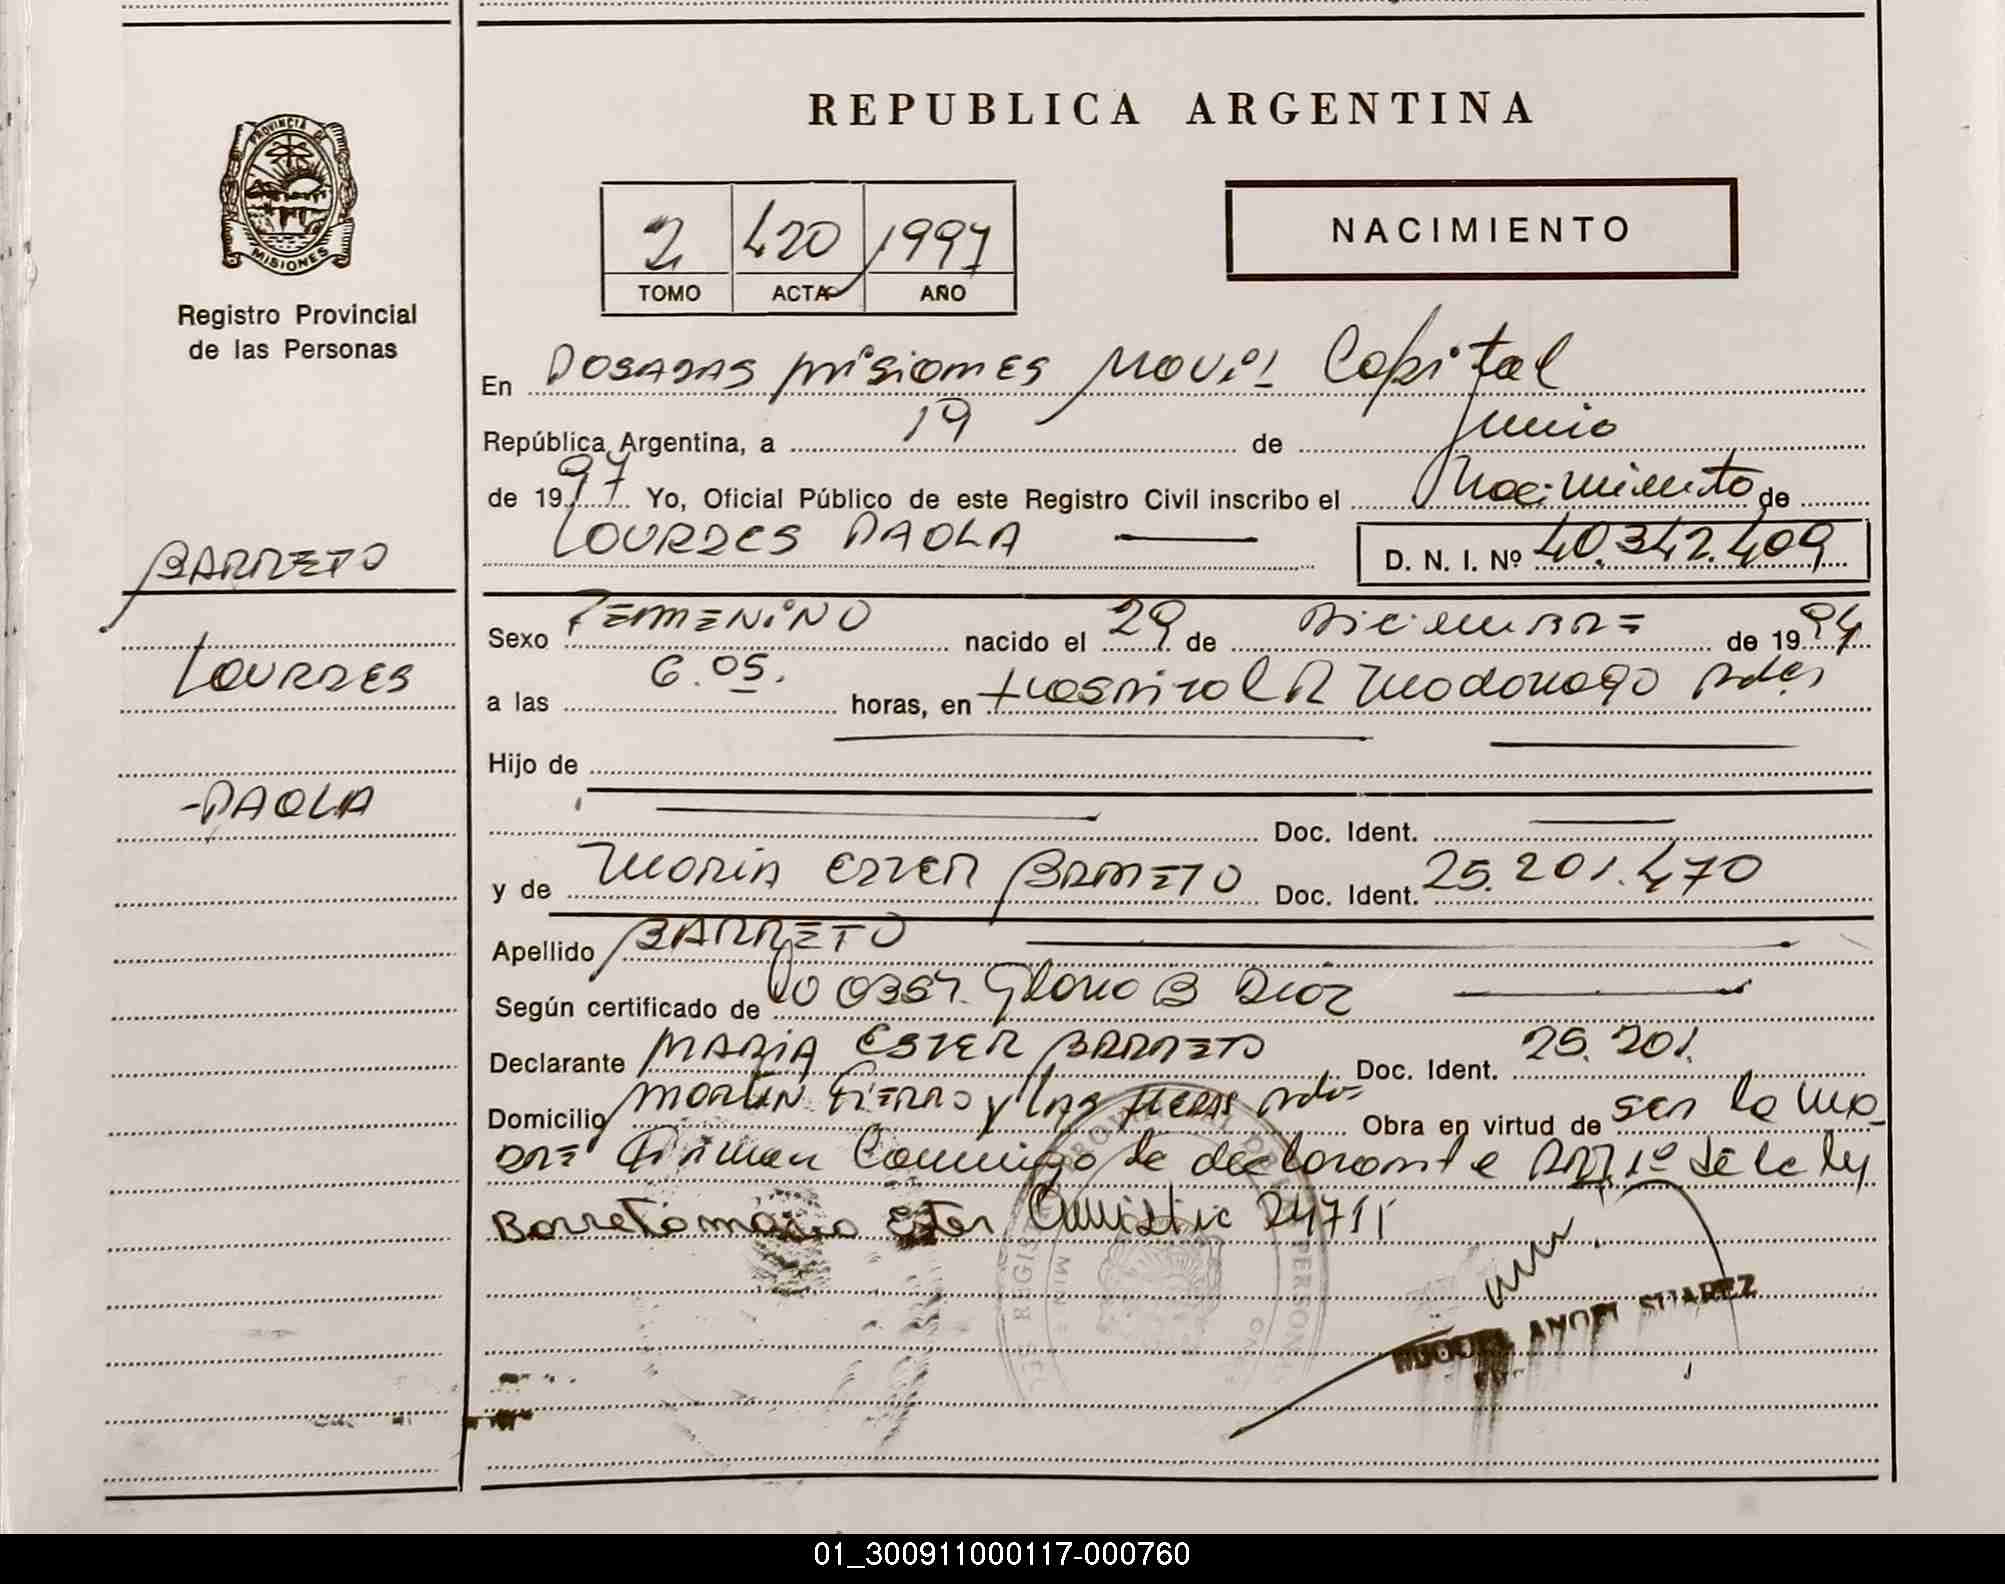 REPUBLICA ARGENTINA
PROVINCIA DE
MISIONES
Registro Provincial
de las Personas
2 420 1997
TOMO ACTA AÑO
NACIMIENTO
En POSADAS MISIONES MOVIL Capital
República Argentina, a 19 de Junio
de 1997 Yo, Oficial Público de este Registro Civil inscribo el Nacimiento de
LOURDES PAOLA D. N. I. Nº 40.342.409
BARRETO
LOURDES
PAOLA
Sexo FEMENINO nacido el 29 de Diciembre de 1994
a las 6.05. horas, en Hospital R Madariaga Pdas
Hijo de
Doc. Ident.
y de Maria Ester BARRETO Doc. Ident. 25.201.470
Apellido BARRETO
Según certificado de Obst. Gloria B Diaz
Declarante MARIA ESTER BARRETO Doc. Ident. 25.201.
Domicilio Martin Fierro y Las Heras Pdas Obra en virtud de ser la ma
dre Firman Conmigo la declarante Art 1º de la ley
Barreto maria Ester Amnistia 24711
MIGUEL ANGEL SUAREZ
01_300911000117-000760